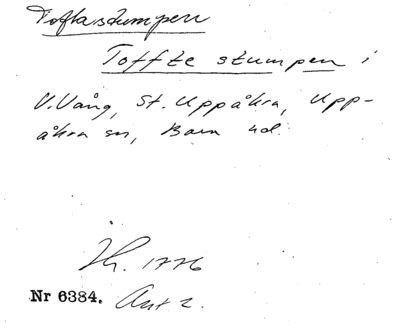 Toftastumpen
Toffte stumpen i
V. Vång, St. Uppåkra, Upp-
åkra sn, Bara hd.
Jh. 1776
Nr 6384. Akt 2.